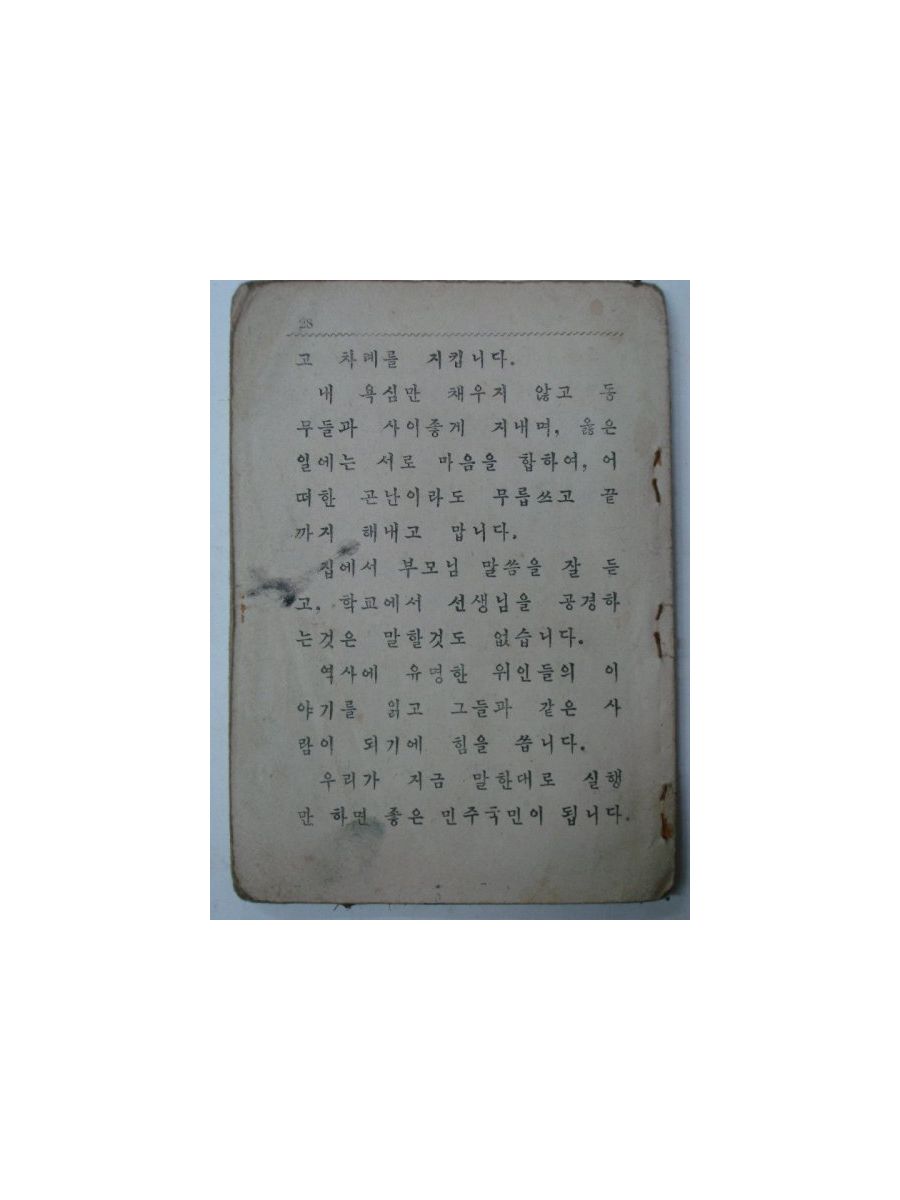 28
고 차례를 지킵니다.
내 욕심만 채우지 않고 동
무들과 사이좋게 지내며, 옳은
일에는 서로 마음을 합하여, 어
떠한 곤난이라도 무릅쓰고 끝
까지 해내고 맙니다.
집에서 부모님 말씀을 잘 듣
고, 학교에서 선생님을 공경하
는것은 말할것도 없습니다.
역사에 유명한 위인들의 이
야기를 읽고 그들과 같은 사
람이 되기에 힘을 씁니다.
우리가 지금 말한대로 실행
만 하면 좋은 민주국민이 됩니다.